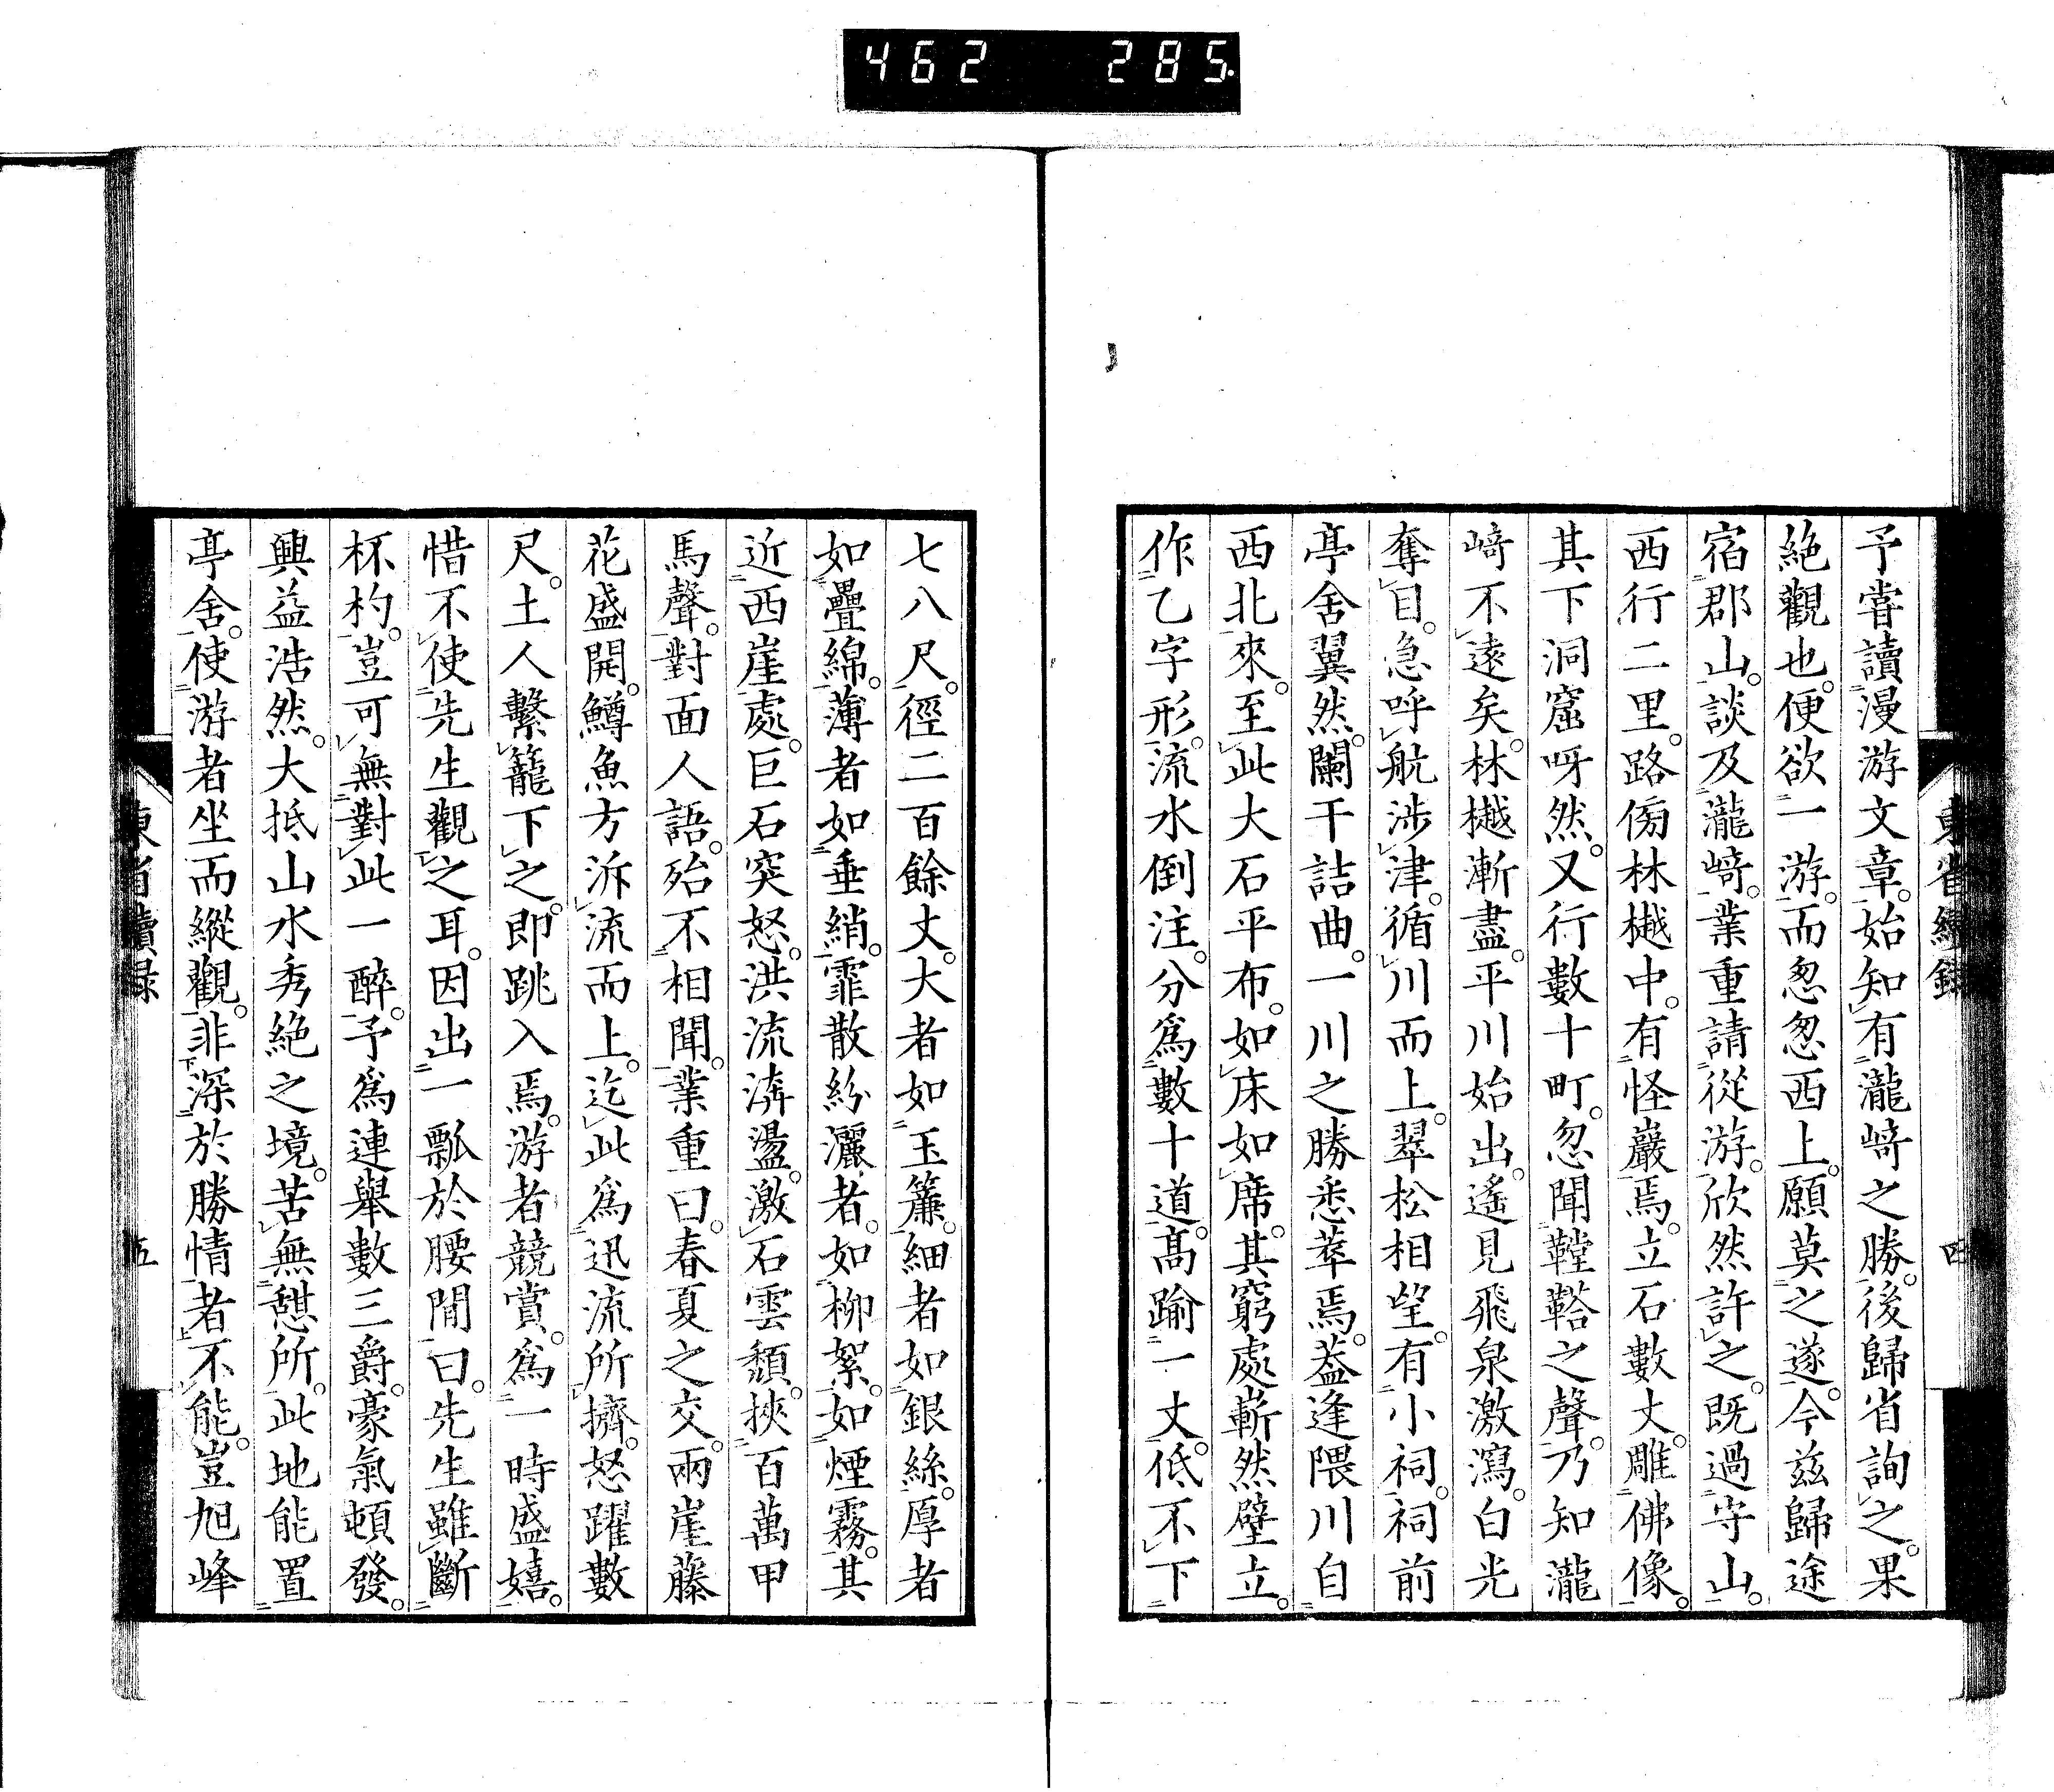 462 285
東省續錄
四
予嘗讀漫游文章。始知有瀧﨑之勝。後歸省詢之。果
絶觀也。便欲一游。而怱怱西上。願莫之遂。今茲歸途
宿郡山。談及瀧﨑。業重請從游。欣然許之。既過守山。
西行二里。路傍林樾中。有怪巖焉。立石數丈。雕佛像。
其下洞窟呀然。又行數十町。忽聞鞺鞳之聲。乃知瀧
﨑不遠矣。林樾漸盡。平川始出。遙見飛泉激瀉。白光
奪目。急呼航涉津。循川而上。翠松相望。有小祠。祠前
亭舍翼然。闌干詰曲。一川之勝悉萃焉。蓋逢隈川自
西北來。至此大石平布。如床如席。其窮處嶄然壁立。
作乙字形。流水倒注。分爲數十道。高踰一丈。低不下
七八尺。徑二百餘丈。大者如玉簾。細者如銀絲。厚者
如疊綿。薄者如垂綃。霏散紛灑者。如柳絮。如煙霧。其
近西崖處。巨石突怒。洪流渀盪。激石雲頽。挾百萬甲
馬聲。對面人語。殆不相聞。業重曰。春夏之交。兩崖藤
花盛開。鱒魚方泝流而上。迄此爲迅流所擠。怒躍數
尺。土人繫籠下之。即跳入焉。游者競賞。爲一時盛嬉。
惜不使先生觀之耳。因出一瓢於腰間曰。先生雖斷
杯杓。豈可無對此一醉。予爲連舉數三爵。豪氣頓發。
興益浩然。大抵山水秀絶之境。苦無憇所。此地能置
亭舍。使游者坐而縱觀。非深於勝情者不能。豈旭峰
東省續録
五